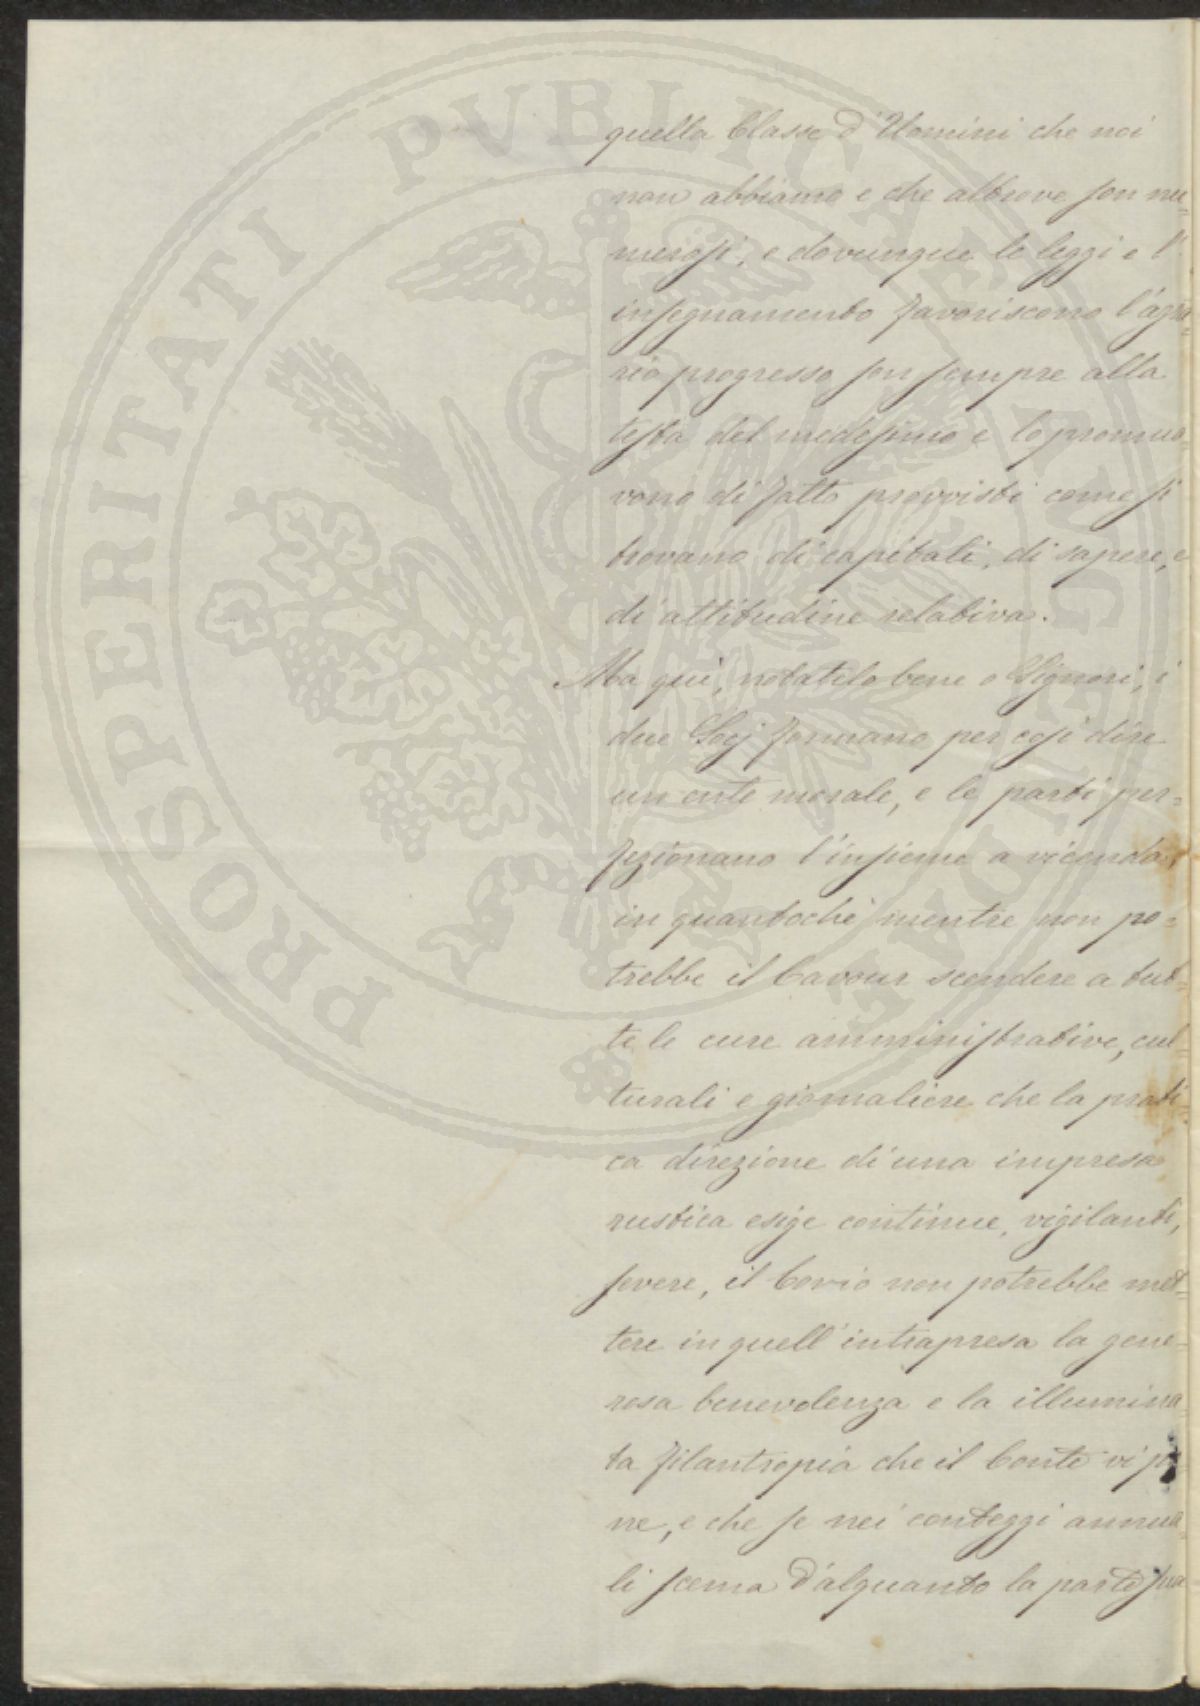 quella Classe d'Uomini che noi
non abbiamo e che altrove son nu=
merosi, e dovunque le leggi e l'
insegnamento favoriscono l'agra=
rio progresso son sempre alla
testa del medesimo e lo promuo=
vono di fatto provvisti come si
trovano di capitali, di sapere, e
di attitudine relativa.
Ma quì, notatelo bene o Signori, i
due Socj formano per così dire
un ente morale, e le parti per=
fezionano l'insieme a vicenda,
in quantochè mentre non po=
trebbe il Cavour scendere a tut=
te le cure amministrative, cul=
turali e giornaliere che la prati=
ca direzione di una impresa
rustica esige continue, vigilanti,
severe, il Corio non potrebbe met=
tere in quell'intrapresa la gene=
rosa benevolenza e la illumina=
ta filantropia che il Conte vi po=
ne, e che se nei conteggi annua=
li scema d'alquanto la parte sua
PROSPERITATI PVBLICAE AVGENDAE